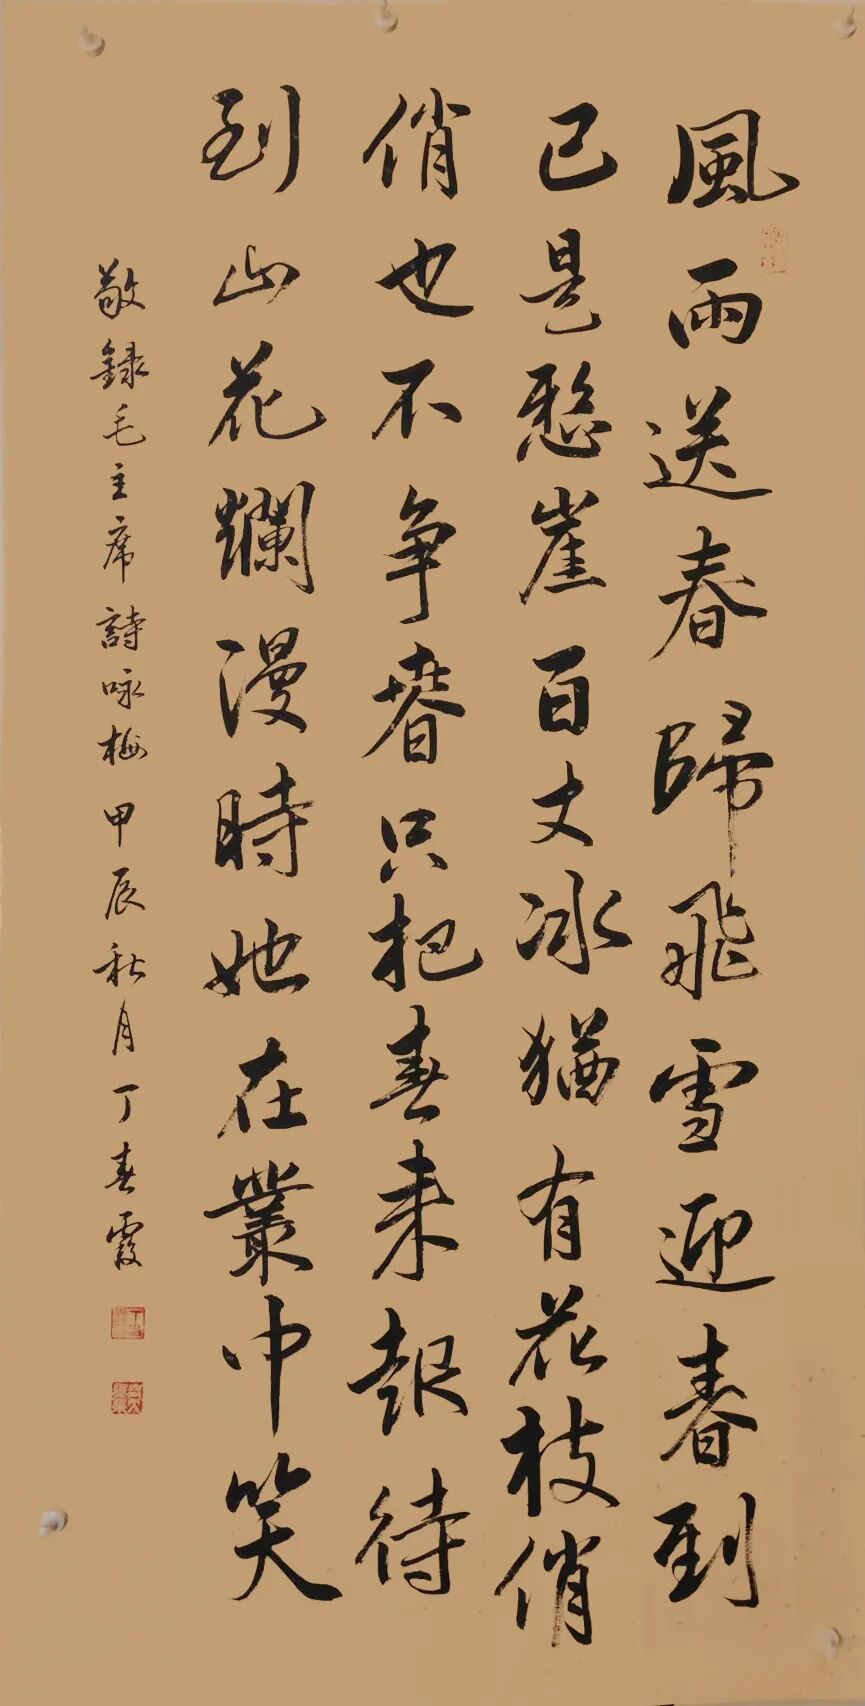 風雨送春歸飛雪迎春到
已是懸崖百丈冰猶有花枝俏
俏也不争春只把春来報待
到山花爛漫時她在叢中笑
敬録毛主席詩咏梅甲辰秋月丁春霞